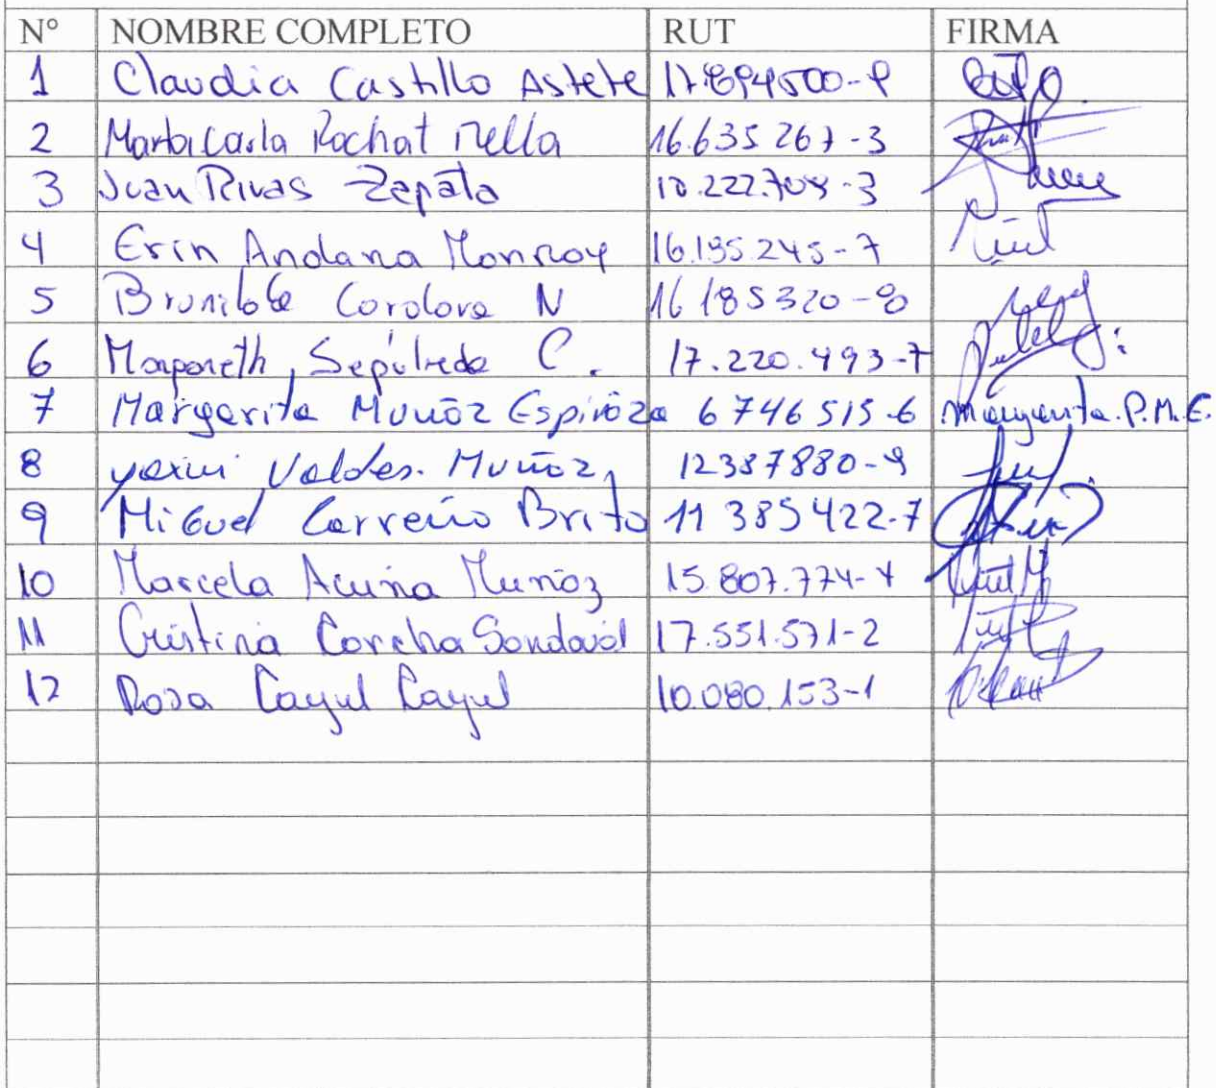 N° NOMBRE COMPLETO RUT FIRMA
1 Claudia Castillo Astete
2 Rochat Mella 16.635 267-3
3 Juan Rivas Zapata 10.222.708-3
4 Erin Andana Monroy 16.195.245-7
5 Cordova N 16 185320-8
6 Margareth Sepúlveda C. 17.220.493-7
7 Margarita Muñoz Espinoza 6 746 515-6 Margarita.P.M.E.
8 Valdes. Muñoz 12387880-9
9 Miguel Carreño Brito 11 385422-7
10 Marcela Acuña Muñoz 15.807.774-4
11 Cristina Concha Sandoval 17.551.571-2
12 Rosa Cayul Cayul 10.080.153-1